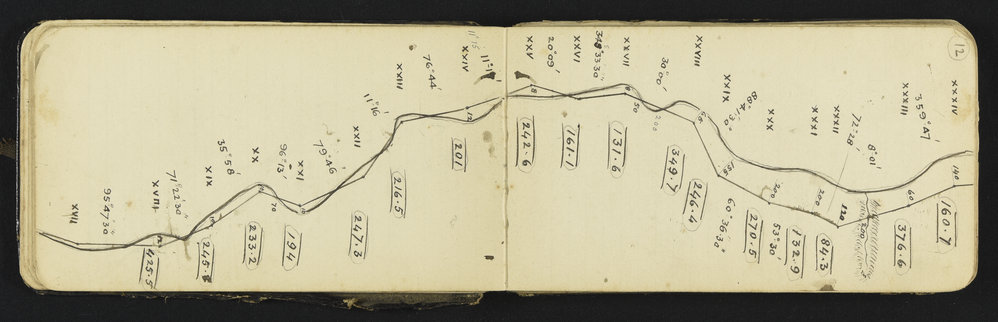 12
XVII
95°47'30"
XVIII
71°22'30"
XIX
35°58'
XX
96°13'
XXI
79°46'
XXII
11°16'
XXIII
76°44'
XXIV
XXV
20°09'
XXVI
XXVII
30°00'
XXVIII
XXIX
88°41'30"
XXX
XXXI
XXXII
72°28'
8°01'
XXXIII
359°47'
XXXIV
425.5
233.2
194
247.3
216.5
201
242.6
161.1
131.6
349.7
246.4
60°36'30"
270.5
53°30'
132.9
84.3
376.6
160.7
70
50
200
200
120
200
60
140